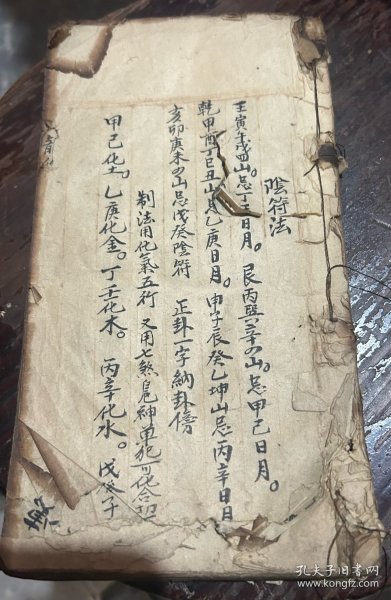 陰符法
壬寅午戌四山。忌丁壬日月。艮丙巽辛四山。忌甲己日月。
乾甲酉丁巳丑山忌乙庚日月。申子辰癸乙坤山忌丙辛日月
亥卯庚未四山忌戊癸陰符 正卦一字納卦傍
制法用化氣五行 又用七煞 神单犯可化合
甲己化土。乙庚化金。丁壬化木。丙辛化水。戊癸
孔夫子旧书网
www.kongfz.com